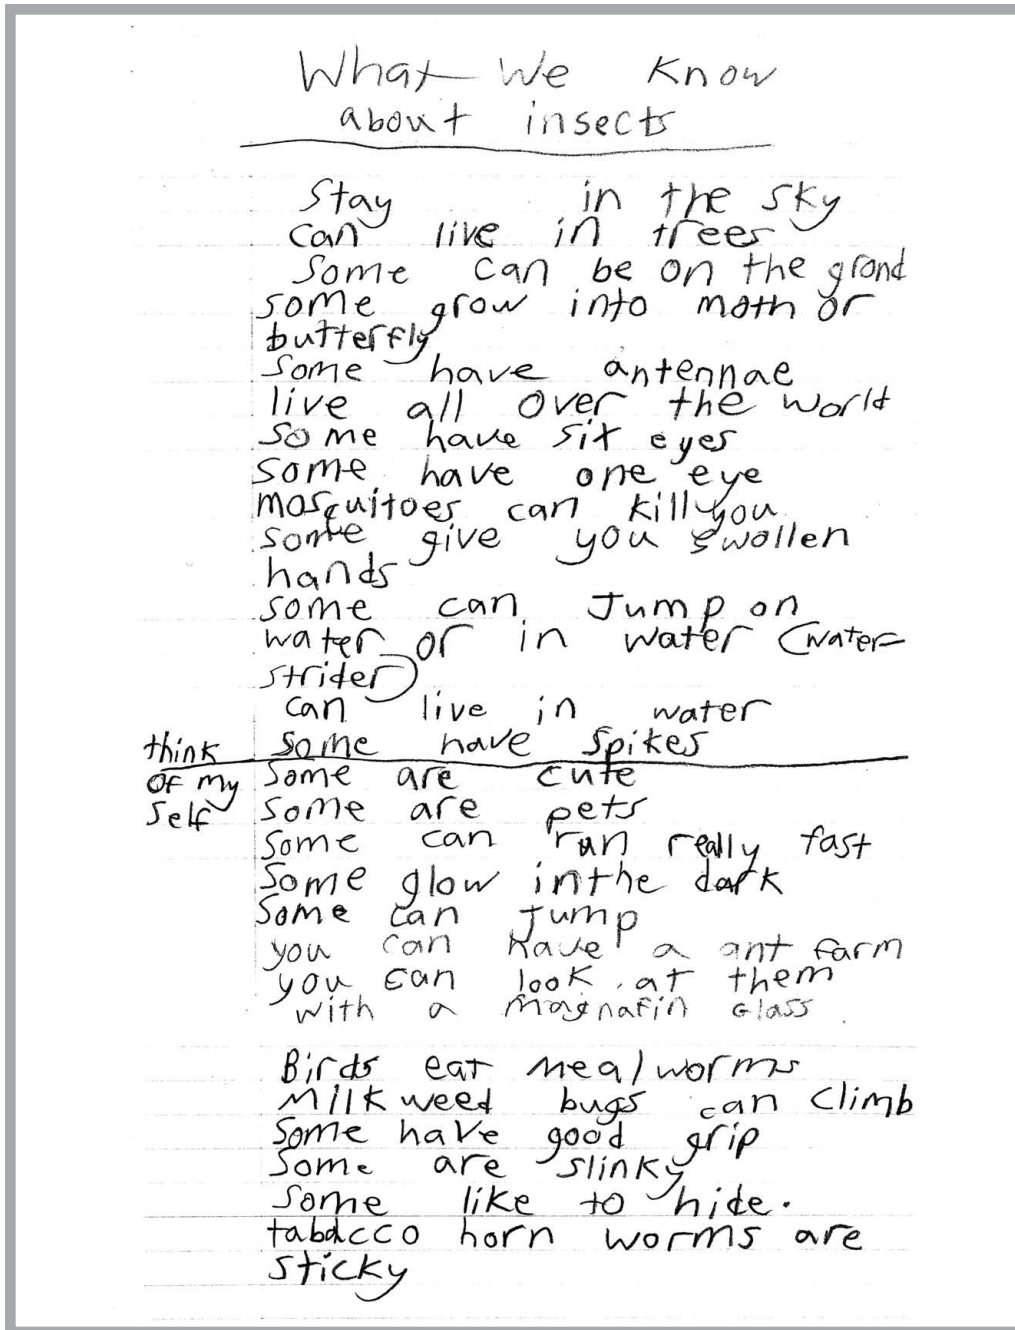 What We Know
about insects
Stay in the sky
can live in trees
Some can be on the grond
some grow into moth or
butterfly
Some have antennae
live all over the world
Some have six eyes
some have one eye
mosquitoes can kill you
some give you swollen
hands
some can Jump on
water or in water (water
strider)
can live in water
some have spikes
think
of my
self
some are cute
some are pets
some can run really fast
Some glow in the dark
Some can Jump
you can have a ant farm
you can look at them
with a magnafin Glass
Birds eat mealworms
Milkweed bugs can climb
Some have good grip
Some are slinky
Some like to hide.
tabacco horn worms are
sticky